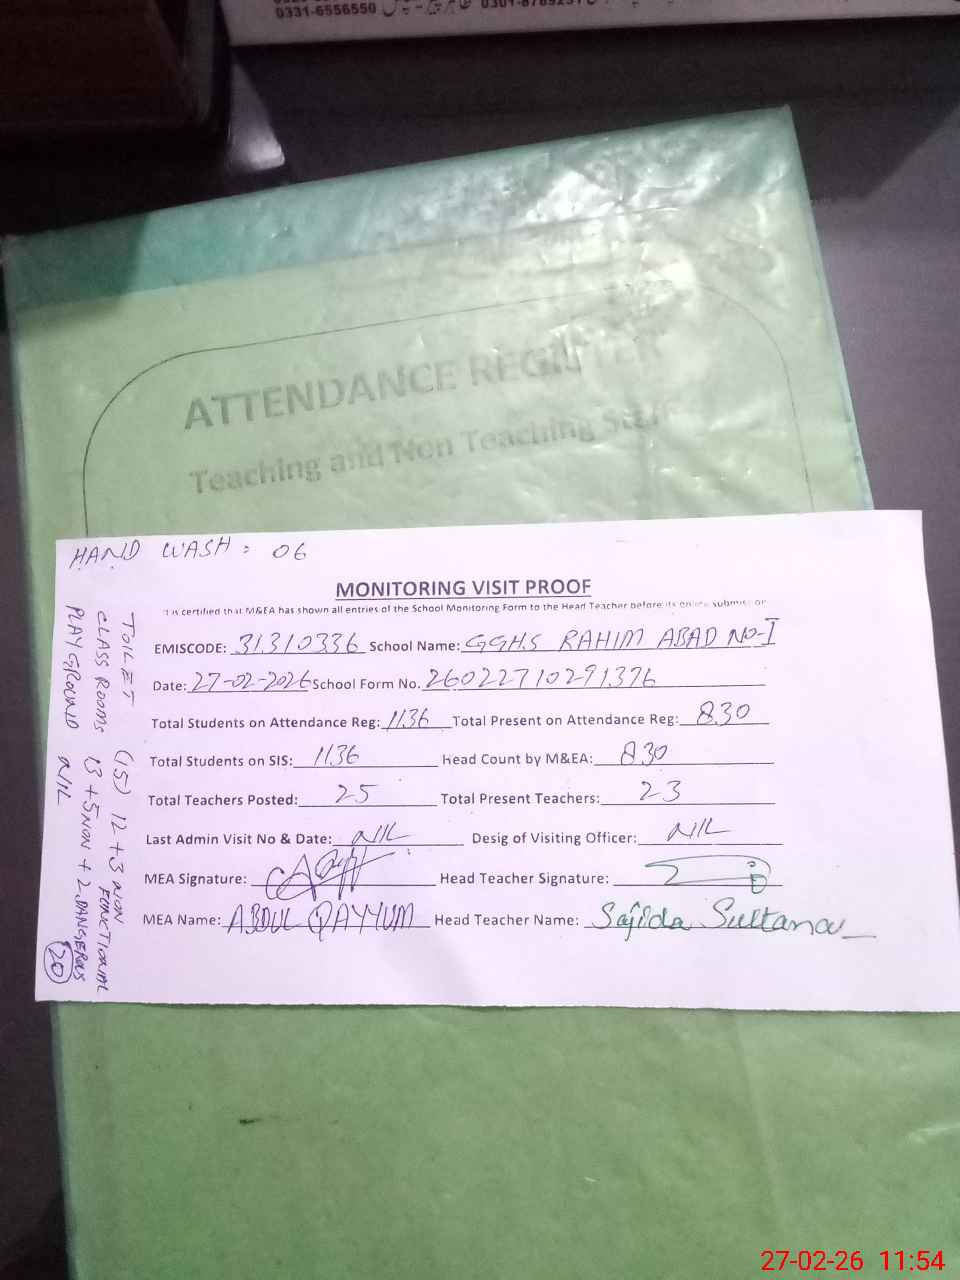 0331-6556550
ATTENDANCE REGISTER
Teaching and Non Teaching Staff
HAND WASH : 06
MONITORING VISIT PROOF
It is certified that M&EA has shown all entries of the School Monitoring Form to the Head Teacher before its online submission
EMISCODE: 31310336 School Name: GGHS RAHIM ABAD NO-I
Date: 27-02-2026 School Form No. 26022710291376
Total Students on Attendance Reg: 1136 Total Present on Attendance Reg: 830
Total Students on SIS: 1136 Head Count by M&EA: 830
Total Teachers Posted: 25 Total Present Teachers: 23
Last Admin Visit No & Date: NIL Desig of Visiting Officer: NIL
MEA Signature: Head Teacher Signature:
MEA Name: ABDUL QAYYUM Head Teacher Name: Sajida Sultana
TOILET (15) 12 + 3 NON FUNCTIONAL
CLASS ROOMS 13 + 5 NON + 2 DANGEROUS (20)
PLAY GROUND NIL
27-02-26 11:54